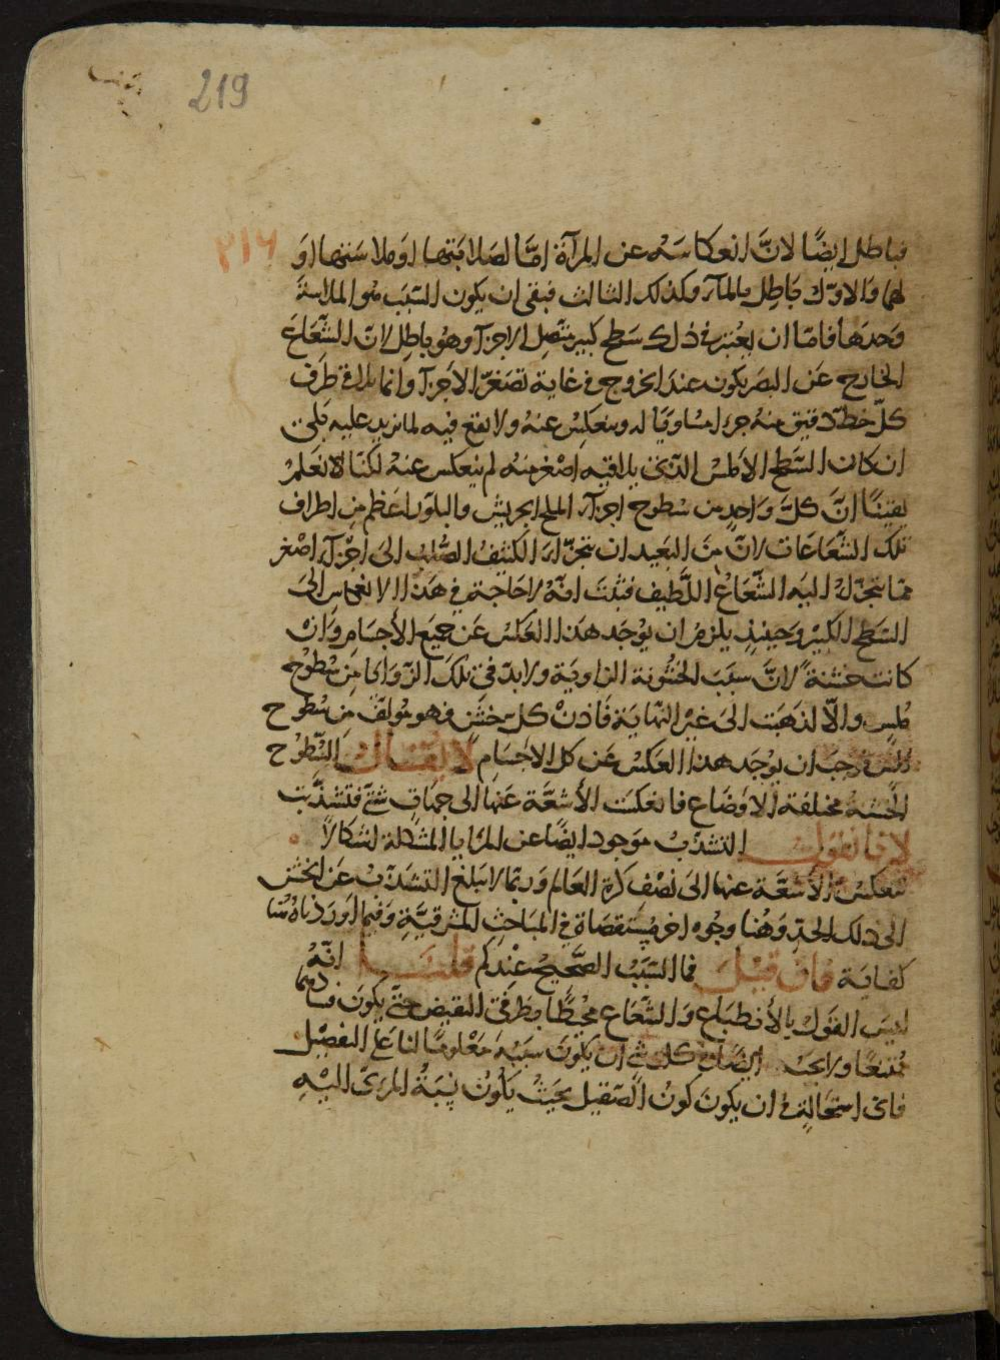 219
٢١٦
فباطل ايضًا لانَّ انعكاسَه عن المرآة امَّا لصلابَتها اَو ملاسَتها اَو
لهما وَالاوّل بَاطِل بالمآء وكذلك الثالث فبقى ان يكون السَّبَب هو الملاسَة
وَحدَها فامّا ان يعُتبر فى ذٰلك سَطح كبير متّصِل الاجزآء وهُو باطِل لانّ الشّعَاعَ
الخارج عَن البصَر يكون عندَ الخروج فى غاية تصَغّر الاَجزآء وانما يلاقى طرَف
كلّ خط دّقيق منهُ جزءا مسَاويًا له وينعكِس عنهُ ولا نفع فيه لما نريد عليه بَلى
ان كان السَّطح الاَملسُ الذّى يلاقيه اصْغر منهُ لم ينعكس عنهُ لكنّا لا نعَلمُ
يقينًا انَّ كلَّ وَاحدٍ من سُطوح اجزآء الملح الجريش والبلوّر اعَظم مِن اطراف
تلك الشّعَاعَات لانّ مِنَ البَعيد ان تجزّاءَ الكثيفُ الصُّلب الى اجَزآء اصْغر
ممّا تتجزّاءُ اليَه الشّعَاعُ اللّطيف فثبَتَ انّهُ لا حَاجة فى هَذا الانعكاس الىَ
السَّطح الكبيْر وَحينيذٍ يلزمُ ان يوْجَد هَذا العكسُ عَن جميَع الأجسَامِ وَان
كانت خشنة لانَّ سبَبَ الخشُونة الزاويَة ولا بدّ فى تلكَ الزّوَايا مِن سُطوْح
مُلسٍ والاّ لذهَبَت الىَ غيْر النّهايَة فَاذنْ كلّ خشَنٍ فهو مُولفٌ من سُطوح
مُلسٍ فوجبَ ان يوْجَد هذا العكسُ عَن كل الاجْسَامِ لا يقَال السّطُوْح
الخَشنة مختلفة الاوضَاع فانعكسَت الأشعّة عَنها الى جهَاتٍ شتّى فتشذّبت
لانا نقول التشذّب موَجود ايضًا عن المرَايا المشكلة اشكالاً
تنعكسُ الاَشعّة عنها الىَ نصْف كرة العَالم وَربّما لا يَبلغ التشذّب عَن الخشن
الى ذلك الحدّ وَهُنا وجُوه اخر مُستَقصَاة فى المبَاحثِ المشرقيَّةِ وَفيما اوَردناهُ هُنا
كفايَة فان قيْل فما السَّبَبُ الصَّحيحُ عنِدكم قلنا انّهُ
ليسَ القَول بالأنطبَاع وَالشّعَاع محيْطًا بطرَفى النقيض حتّى يكونَ فسادهما
مُمتنعًا ولا يجبُ ايضًا فى كل شئ ان يكونَ سبَبهُ مَعْلومًا لنا عَلى التفصْيل
فاى استحالةٍ فى ان يكونَ كونُ الصّقيل بحَيثُ يَكُوْنُ نِسَبَةُ المرءى اليْهِ